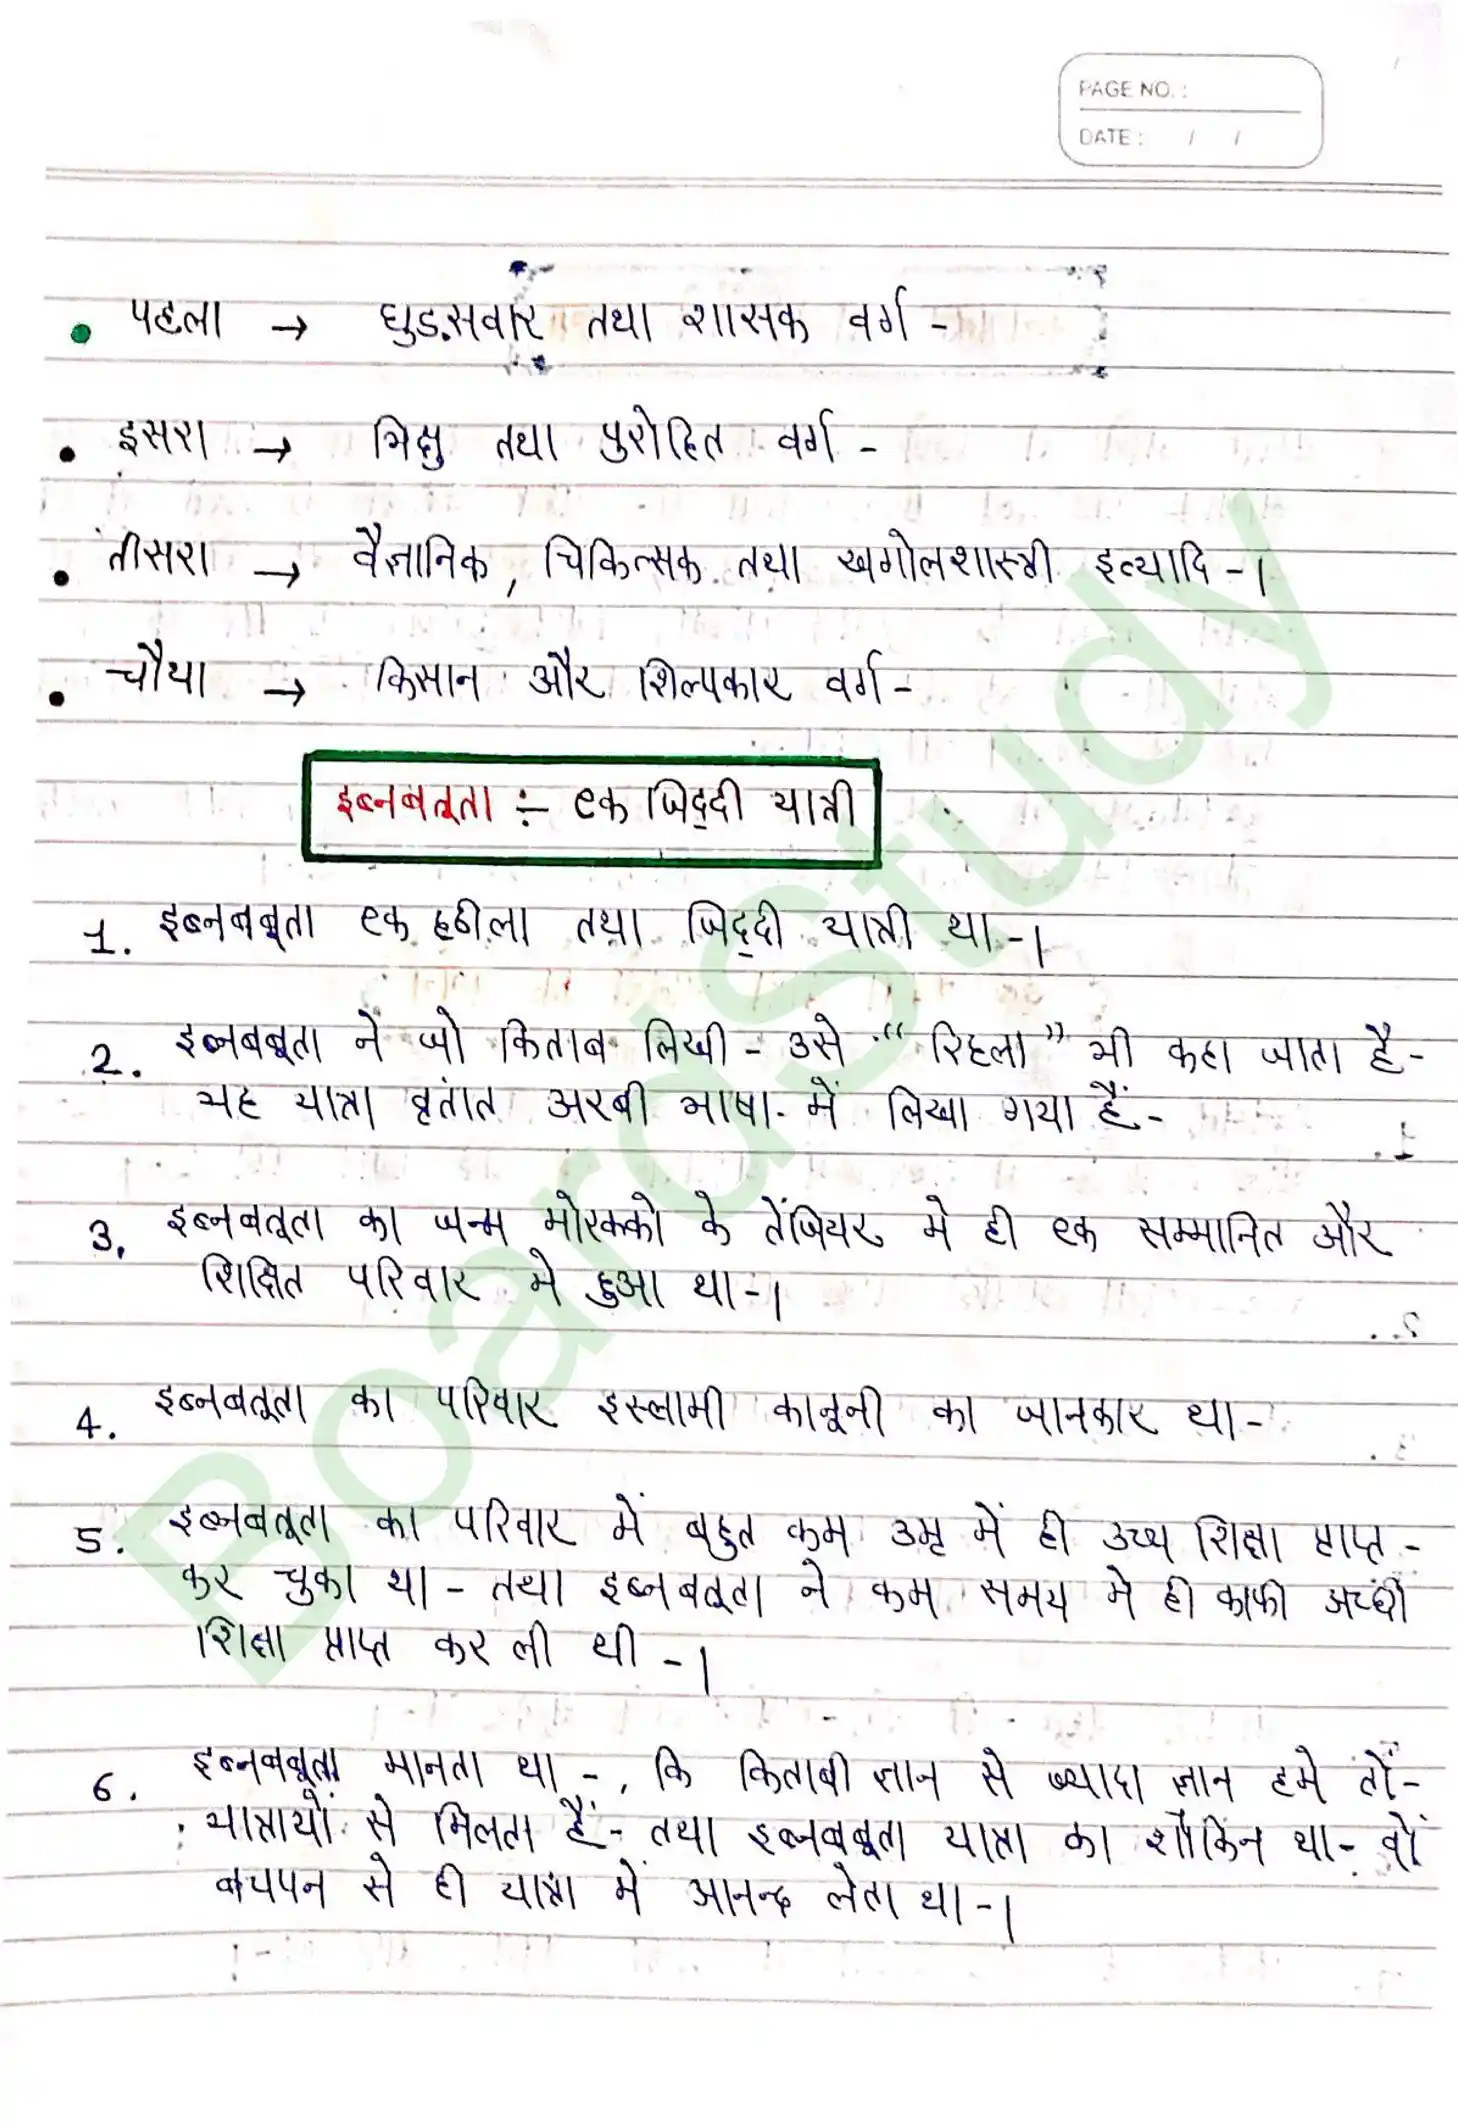 PAGE NO. :
DATE : / /
• पहला → घुड़सवार तथा शासक वर्ग -
• दूसरा → भिक्षु तथा पुरोहित वर्ग -
• तीसरा → वैज्ञानिक, चिकित्सक तथा खगोलशास्त्री इत्यादि -।
• चौथा → किसान और शिल्पकार वर्ग -
इब्नबतूता :- एक जिद्दी यात्री
1. इब्नबबूता एक हठीला तथा जिद्दी यात्री था -।
2. इब्नबबूता ने जो किताब लिखी - उसे "रिहला" भी कहा जाता है -
यह यात्रा वृतांत अरबी भाषा में लिखा गया हैं -
3. इब्नबतूता का जन्म मोरक्को के तेंजियर मे ही एक सम्मानित और
शिक्षित परिवार मे हुआ था -।
4. इब्नबतूता का परिवार इस्लामी कानूनी का जानकार था -
5. इब्नबतूता का परिवार में बहुत कम उम्र में ही उच्य शिक्षा प्राप्त -
कर चुका था - तथा इब्नबतूता ने कम समय मे ही काफी अच्छी
शिक्षा प्राप्त कर ली थी -।
6. इब्नबबूता मानता था -, कि किताबी ज्ञान से ज्यादा ज्ञान हमे तों -
यात्रायों से मिलता हैं - तथा इब्नबबूता यात्रा का शौकिन था - वों
बचपन से ही यात्रा में आनन्द लेता था -।
BoardStudy